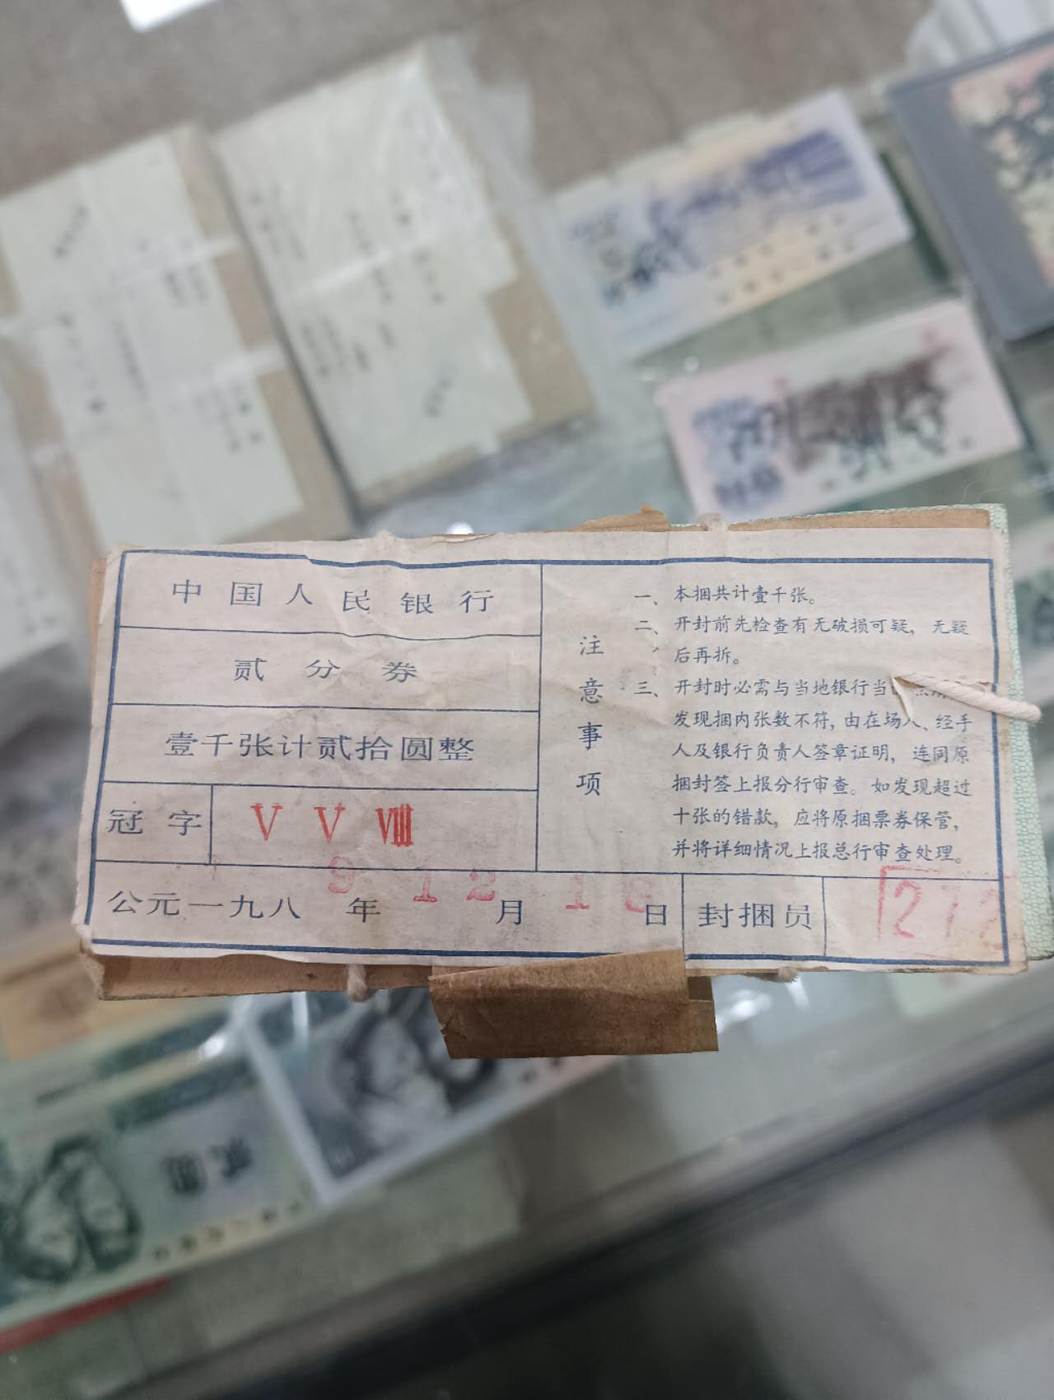 中国人民银行
贰分券
壹千张计贰拾圆整
冠字 V V VIII
公元一九八9年12月18日
封捆员 272
注意事项
一、本捆共计壹千张。
二、开封前先检查有无破损可疑，无疑
后再拆。
三、开封时必需与当地银行当
发现捆内张数不符，由在场人、经手
人及银行负责人签章证明，连同原
捆封签上报分行审查。如发现超过
十张的错款，应将原捆票券保管，
并将详细情况上报总行审查处理。
贰圆